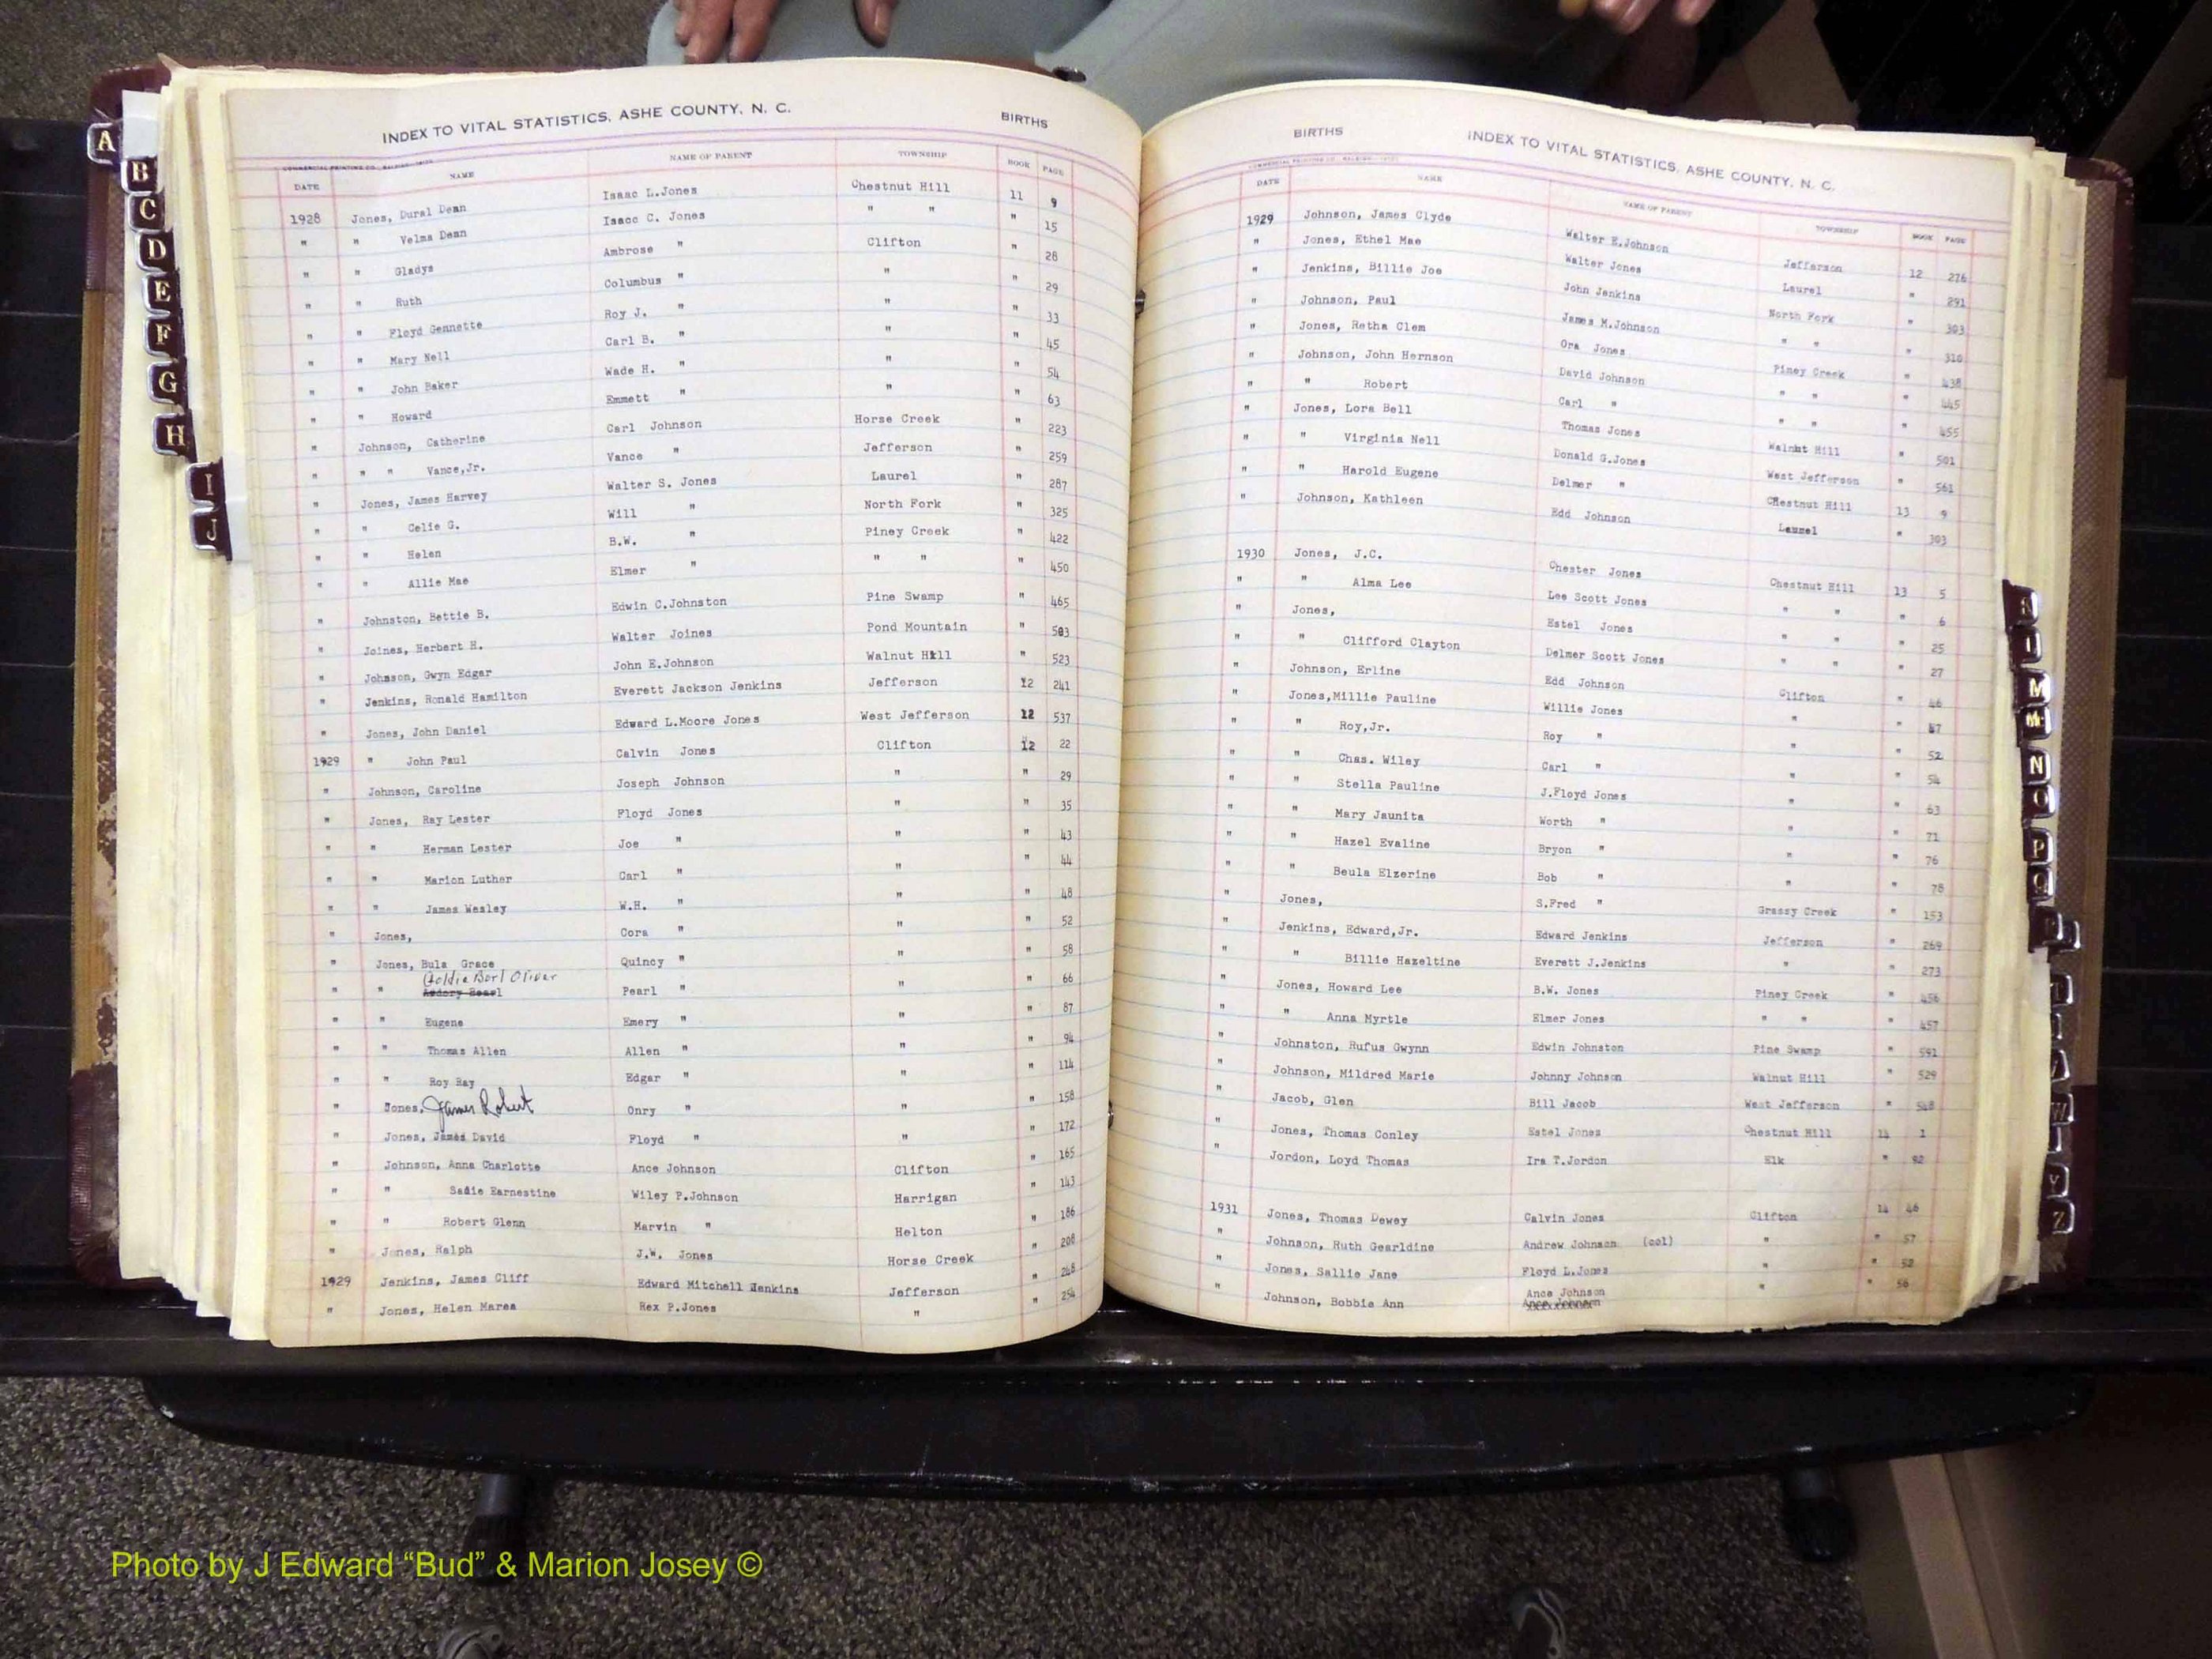 INDEX TO VITAL STATISTICS, ASHE COUNTY, N. C. BIRTHS
DATE NAME NAME OF PARENT TOWNSHIP BOOK PAGE
1928 Jones, Dural Dean Isaac L.Jones Chestnut Hill 11 9
" " Velma Dean Isacc C. Jones " " " 15
" " Gladys Ambrose " Clifton " 28
" " Ruth Columbus " " " 29
" " Floyd Gennette Roy J. " " " 33
" " Mary Nell Carl B. " " " 45
" " John Baker Wade H. " " " 54
" " Howard Emmett " " " 63
" Johnson, Catherine Carl Johnson Horse Creek " 223
" " " Vance,Jr. Vance " Jefferson " 259
" Jones, James Harvey Walter S. Jones Laurel " 287
" " Celie G. Will " North Fork " 325
" " Helen B.W. " Piney Creek " 422
" " Allie Mae Elmer " " " " 450
" Johnston, Bettie B. Edwin C.Johnston Pine Swamp " 465
" Joines, Herbert H. Walter Joines Pond Mountain " 503
" Johnson, Gwyn Edgar John E.Johnson Walnut Hill " 523
" Jenkins, Ronald Hamilton Everett Jackson Jenkins Jefferson 12 241
" Jones, John Daniel Edward L.Moore Jones West Jefferson 12 537
1929 " John Paul Calvin Jones Clifton 12 22
" Johnson, Caroline Joseph Johnson " " 29
" Jones, Ray Lester Floyd Jones " " 35
" " Herman Lester Joe " " " 43
" " Marion Luther Carl " " " 44
" " James Wesley W.H. " " " 48
" Jones, Cora " " " 52
" Jones, Bula Grace Quincy " " " 58
Goldie Borl Oliver
" " Pearl " " " 66
" " Eugene Emery " " " 87
" " Thomas Allen Allen " " " 94
" " Roy Ray Edgar " " " 114
" Jones, James Robert Onry " " " 158
" Jones, James David Floyd " " " 172
" Johnson, Anna Charlotte Ance Johnson Clifton " 165
" " Sadie Earnestine Wiley P.Johnson Harrigan " 143
" " Robert Glenn Marvin " Helton " 186
" Jones, Ralph J.W. Jones Horse Creek " 208
1929 Jenkins, James Cliff Edward Mitchell Jenkins Jefferson " 248
" Jones, Helen Marea Rex P.Jones " " 254
BIRTHS INDEX TO VITAL STATISTICS, ASHE COUNTY, N. C.
DATE NAME NAME OF PARENT TOWNSHIP BOOK PAGE
1929 Johnson, James Clyde Walter E.Johnson Jefferson 12 276
" Jones, Ethel Mae Walter Jones Laurel " 291
" Jenkins, Billie Joe John Jenkins North Fork " 303
" Johnson, Paul James M.Johnson " " " 310
" Jones, Retha Clem Ora Jones Piney Creek " 438
" Johnson, John Hernson David Johnson " " " 445
" " Robert Carl " " " " 455
" Jones, Lora Bell Thomas Jones Walnut Hill " 501
" " Virginia Nell Donald G.Jones West Jefferson " 561
" " Harold Eugene Delmer " Chestnut Hill 13 9
" Johnson, Kathleen Edd Johnson Laurel " 303
1930 Jones, J.C. Chester Jones Chestnut Hill 13 5
" " Alma Lee Lee Scott Jones " " " 6
" Jones, Estel Jones " " " 25
" " Clifford Clayton Delmer Scott Jones " " " 27
" Johnson, Erline Edd Johnson Clifton " 46
" Jones,Millie Pauline Willie Jones " "
" " Roy,Jr. Roy " " " 52
" " Chas. Wiley Carl " " " 54
" " Stella Pauline J.Floyd Jones " " 63
" " Mary Jaunita Worth " " " 71
" " Hazel Evaline Bryon " " " 76
" " Beula Elzerine Bob " " " 78
" Jones, S.Fred " Grassy Creek " 153
" Jenkins, Edward,Jr. Edward Jenkins Jefferson " 269
" " Billie Hazeltine Everett J.Jenkins " " 273
" Jones, Howard Lee B.W. Jones Piney Creek " 456
" " Anna Myrtle Elmer Jones " " " 457
" Johnston, Rufus Gwynn Edwin Johnston Pine Swamp "
" Johnson, Mildred Marie Johnny Johnson Walnut Hill " 529
" Jacob, Glen Bill Jacob West Jefferson "
" Jones, Thomas Conley Estel Jones Chestnut Hill 14 1
" Jordon, Loyd Thomas Ira T.Jordon Elk " 92
1931 Jones, Thomas Dewey Calvin Jones Clifton 14 46
" Johnson, Ruth Gearldine Andrew Johnson (col) " " 57
" Jones, Sallie Jane Floyd L.Jones " " 52
" Johnson, Bobbie Ann Ance Johnson " " 56
A
B
C
D
E
F
G
H
I
J
M
Mc
N
O
P
Q
W
Y
Z
Photo by J Edward “Bud” & Marion Josey ©